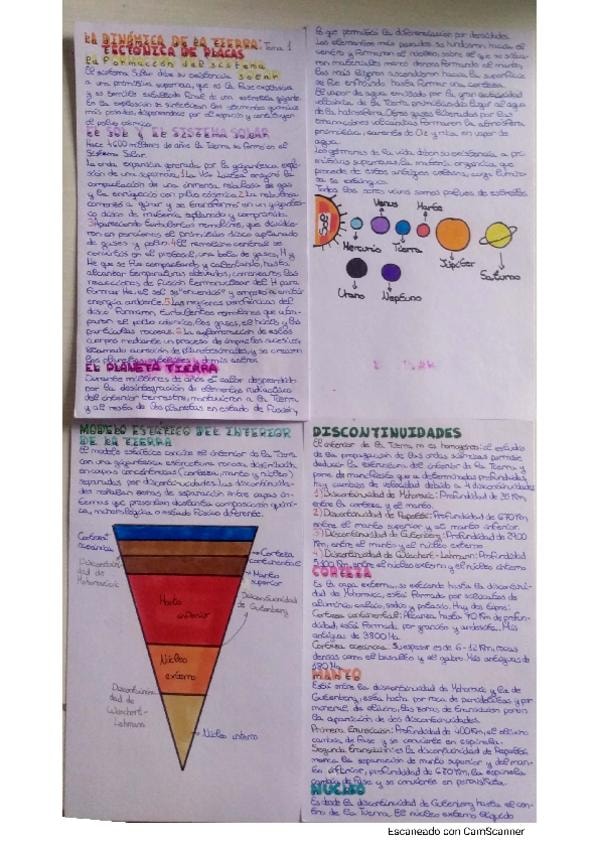 LA DINÁMICA DE LA TIERRA: Tema 1
TECTÓNICA DE PLACAS
La formación del sistema
solar
El sistema Solar debe su existencia
a una primitiva supernova, que es la fase explosiva
final de una estrella gigante.
En la explosión se sintetizan los elementos químicos
más pesados, dispersándose por el espacio y constituyen
el polvo cósmico.
EL SOL Y EL SISTEMA SOLAR
Hace 4600 millones de años la Tierra se formó en el
Sistema Solar.
La onda expansiva generada por la gigantesca explo-
sión de una supernova. 1 La Vía Láctea originó la
compactación de una inmensa nebulosa de gas
y la enriqueció con polvo cósmico. 2 La nebulosa
comenzó a girar y se transformó en un gigantes-
co disco de materia aplanado y comprimido.
3 Aparecieron turbulentos remolinos, que dividie-
ron en porciones el primitivo disco aplanado
de gases y polvo. 4 El remolino central se
convirtió en el protosol, una bola de gases, H y
He que se fue compactando y calentando, hasta
alcanzar temperaturas elevadas, comenzaron las
reacciones de fusión termonuclear del H para
formar He, el sol se "encendió" y empezó a emitir
energía radiante. 5 Las regiones periféricas del
disco formaron turbulentos remolinos que atra-
paron el polvo cósmico, los gases, el hielo y las
partículas rocosas. 6 La aglomeración de estos
cuerpos mediante un proceso de impactos sucesivos
llamado acreción de planetesimales, y se crearon
los planetas, satélites y demás astros.
EL PLANETA TIERRA
Durante millones de años el calor desprendido
por la desintegración de elementos radiactivos
del interior terrestre, mantuvieron a la Tierra
y al resto de los planetas en estado de fusión,
lo que permitió la diferenciación por densidades.
Los elementos más pesados se hundieron hacia el
centro y formaron el núcleo, sobre el que se situa-
ron materiales menos densos formando el manto,
los más ligeros ascendieron hacia la superficie
se fue enfriando hasta formar una corteza.
El vapor de agua emitido por la gran actividad
volcánica de la Tierra primitiva dio lugar al agua
de la hidrosfera. Otros gases liberados por las
emanaciones volcánicas formaron la atmósfera
primitiva, carente de O2 y rica en vapor de
agua.
Los gérmenes de la vida deben su existencia a pri-
mitivas supernovas, la materia orgánica que
procede de estas
Todos los seres vivos somos polvos de estrellas
SOL
Mercurio
Venus
Tierra
Marte
Júpiter
Saturno
Urano
Neptuno
MODELO ESTÁTICO DEL INTERIOR
DE LA TIERRA
El modelo estático concibe el interior de la Tierra
con una gigantesca estructura rocosa distribuida
en capas concéntricas (corteza, manto y núcleo)
separadas por discontinuidades. Las discontinuida-
des señalan zonas de separación entre capas in-
ternas que presentan distinta composición quími-
ca, mineralógica o estado físico diferente.
Corteza
oceánica
Corteza
continental
Discontinui-
dad de
Mohorovicic
Manto
superior
Manto
inferior
Discontinuidad
de Gutenberg
Núcleo
externo
Discontinui-
dad de
Wiechert-
Lehmann
Núcleo interno
DISCONTINUIDADES
El interior de la Tierra no es homogéneo: el estudio
de la propagación de las ondas sísmicas permite
deducir la estructura del interior de la Tierra y
pone de manifiesto que a determinadas profundidades
hay cambios de velocidad debido a 4 discontinuidades
1) Discontinuidad de Mohorovicic: Profundidad de 35 Km,
entre la corteza y el manto.
2) Discontinuidad de Repetti: Profundidad de 670 Km
entre el manto superior y el manto inferior.
3) Discontinuidad de Gutenberg: Profundidad de 2900
Km, entre el manto y el núcleo externo
4) Discontinuidad de Wiechert-Lehmann: Profundidad
5.100 Km, entre el núcleo externo y el núcleo interno
CORTEZA
Es la capa externa, se extiende hasta la discontinui-
dad de Mohorovicic, está formada por silicatos de
aluminio, calcio, sodio y potasio. Hay dos tipos:
Corteza continental: Alcanza hasta 70 Km de profun-
didad, está formada por granito y andesita. Más
antiguas de 3800 Ma.
Corteza oceánica: Su espesor es de 6-12 Km, rocas
densas como el basalto y el gabro. Más antiguas de
180 Ma
MANTO
Está entre la discontinuidad de Mohorovicic y la de
Gutenberg, está hecha por roca de peridotitas y por
mineral de olivino, las zonas de transición por
la aparición de dos discontinuidades.
Primera transición: Profundidad de 400 Km, el olivino
cambia de fase y se convierte en espinela.
Segunda transición: es la discontinuidad de Repetti
marca la separación de manto superior y del man-
to inferior, profundidad de 670 Km, la espinela
cambia de fase y se convierte en perovskita
NÚCLEO
Es desde la discontinuidad de Gutenberg hasta el cen-
tro de la Tierra. El núcleo externo líquido
Escaneado con CamScanner